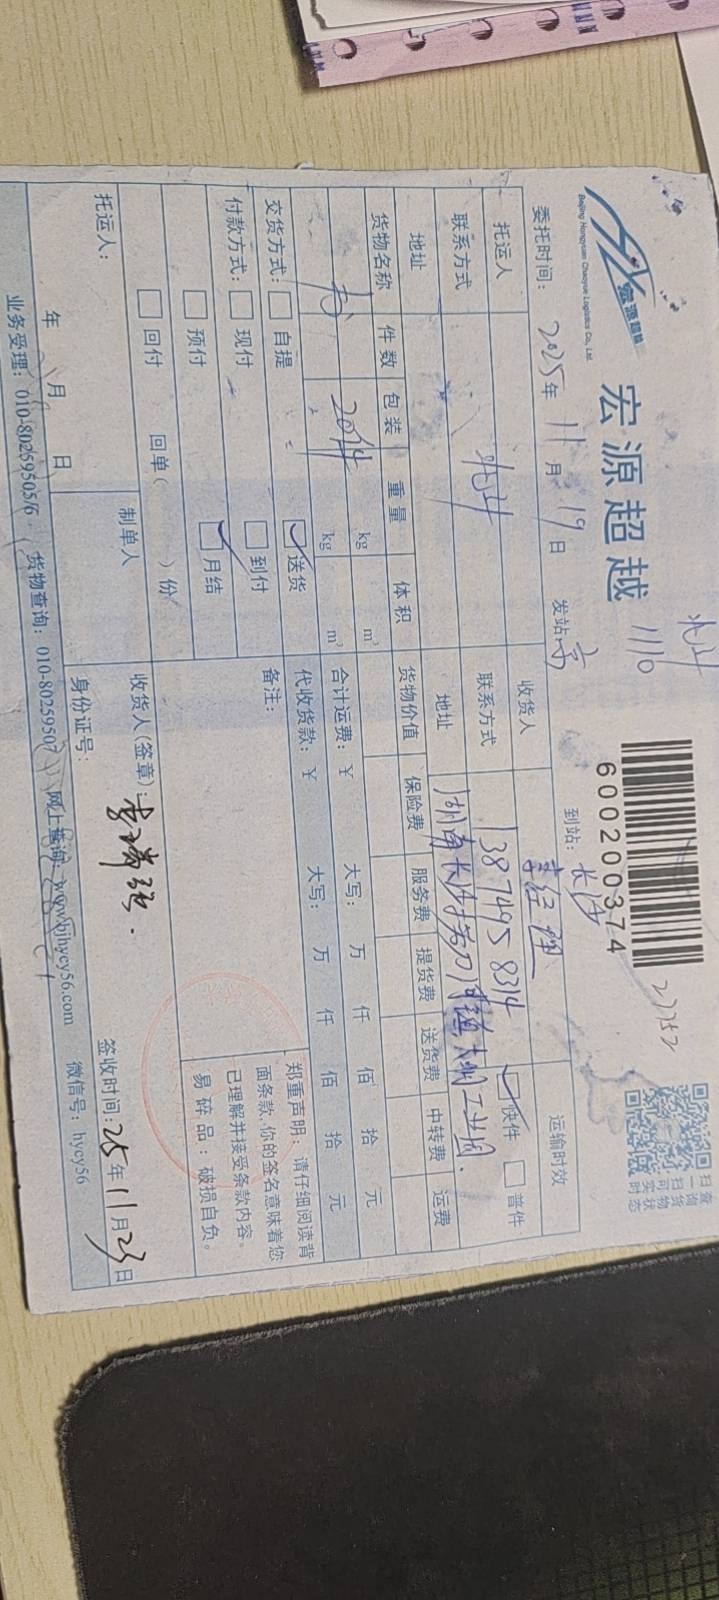 宏源超越
Beijing Hongyuan Chaoyue Logistics Co., Ltd.
宏源超越
1110
600200374
扫一扫
查询货物
可实时状态
委托时间: 2025年 11月 19日
发站: 京
到站: 长沙
托运人
收货人 李经理
运输时效
联系方式
联系方式 13874958314
快件 普件
地址
地址 湖南长沙
工业园
货物名称 件数 包装 重量 体积
货物价值 保险费 服务费 提货费 送货费 中转费 运费
书 20件 kg m³
kg m³
合计运费: ¥ 大写: 万 仟 佰 拾 元
代收货款: ¥ 大写: 万 仟 佰 拾 元
交货方式: 自提 送货
备注:
付款方式: 现付 到付
预付 月结
回付 回单( )份
郑重声明: 请仔细阅读背
面条款,你的签名意味着您
已理解并接受条款内容。
易碎品: 破损自负。
托运人:
年 月 日
制单人
收货人(签章):
身份证号:
签收时间: 25年11月23日
业务受理: 010-80259505/6 货物查询: 010-80259507 网上查询: www.bjhycy56.com 微信号: hycy56